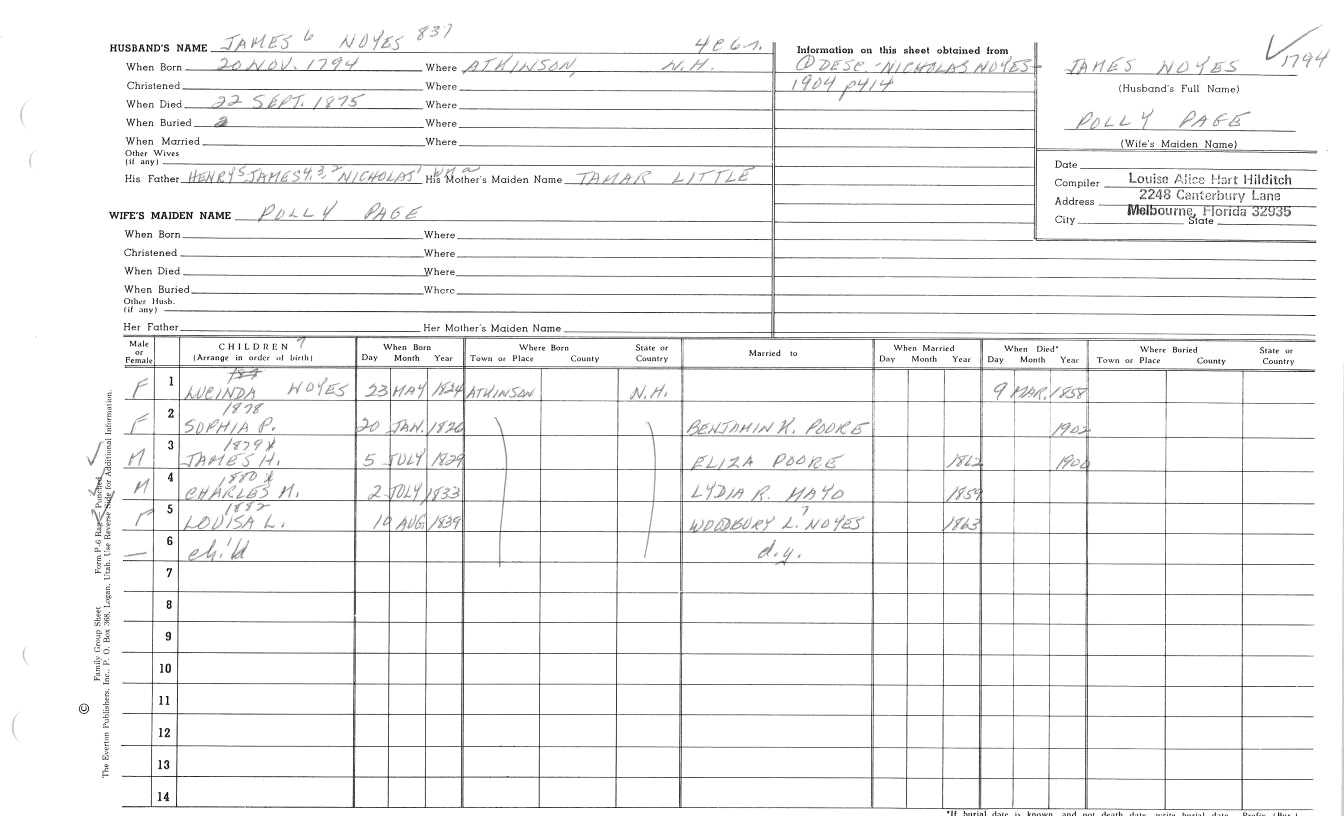 HUSBAND'S NAME JAMES 6 NOYES 837 4 ch.
When Born 20 NOV. 1794 Where ATKINSON, N.H.
Christened Where
When Died 22 SEPT. 1875 Where
When Buried Where
When Married Where
Other Wives
(if any)
His Father HENRY 5 JAMES 4, 3, 2 NICHOLAS 1 His Mother's Maiden Name TAMAR LITTLE
WIFE'S MAIDEN NAME POLLY PAGE
When Born Where
Christened Where
When Died Where
When Buried Where
Other Husb.
(if any)
Her Father Her Mother's Maiden Name
Information on this sheet obtained from
① DESC - NICHOLAS NOYES -
1904 p414
JAMES NOYES 1794
(Husband's Full Name)
POLLY PAGE
(Wife's Maiden Name)
Date
Compiler Louise Alice Hart Hilditch
Address 2248 Canterbury Lane
Melbourne, Florida 32935
City State
Male or Female CHILDREN 7 (Arrange in order of birth) When Born Day Month Year Where Born Town or Place County State or Country Married to When Married Day Month Year When Died* Day Month Year Where Buried Town or Place County State or Country
F 1 LUCINDA NOYES 23 MAY 1824 ATKINSON N.H. 9 MAR. 1858
1878
F 2 SOPHIA P. 20 JAN. 1826 BENJAMIN K. POORE 1902
1879 x
M 3 JAMES H. 5 JULY 1829 ELIZA POORE 1862 1900
1880 x
M 4 CHARLES M. 2 JULY 1833 LYDIA R. MAYO 1859
1882
F 5 LOUISA L. 10 AUG. 1839 WOODBURY L. 7 NOYES 1863
— 6 child d.y.
7
8
9
10
11
12
13
14
© Family Group Sheet Form P-6 Punched
The Everton Publishers, Inc., P. O. Box 368, Logan, Utah. Use Reverse Side for Additional Information.
*If burial date is known, and not death date, write burial date.